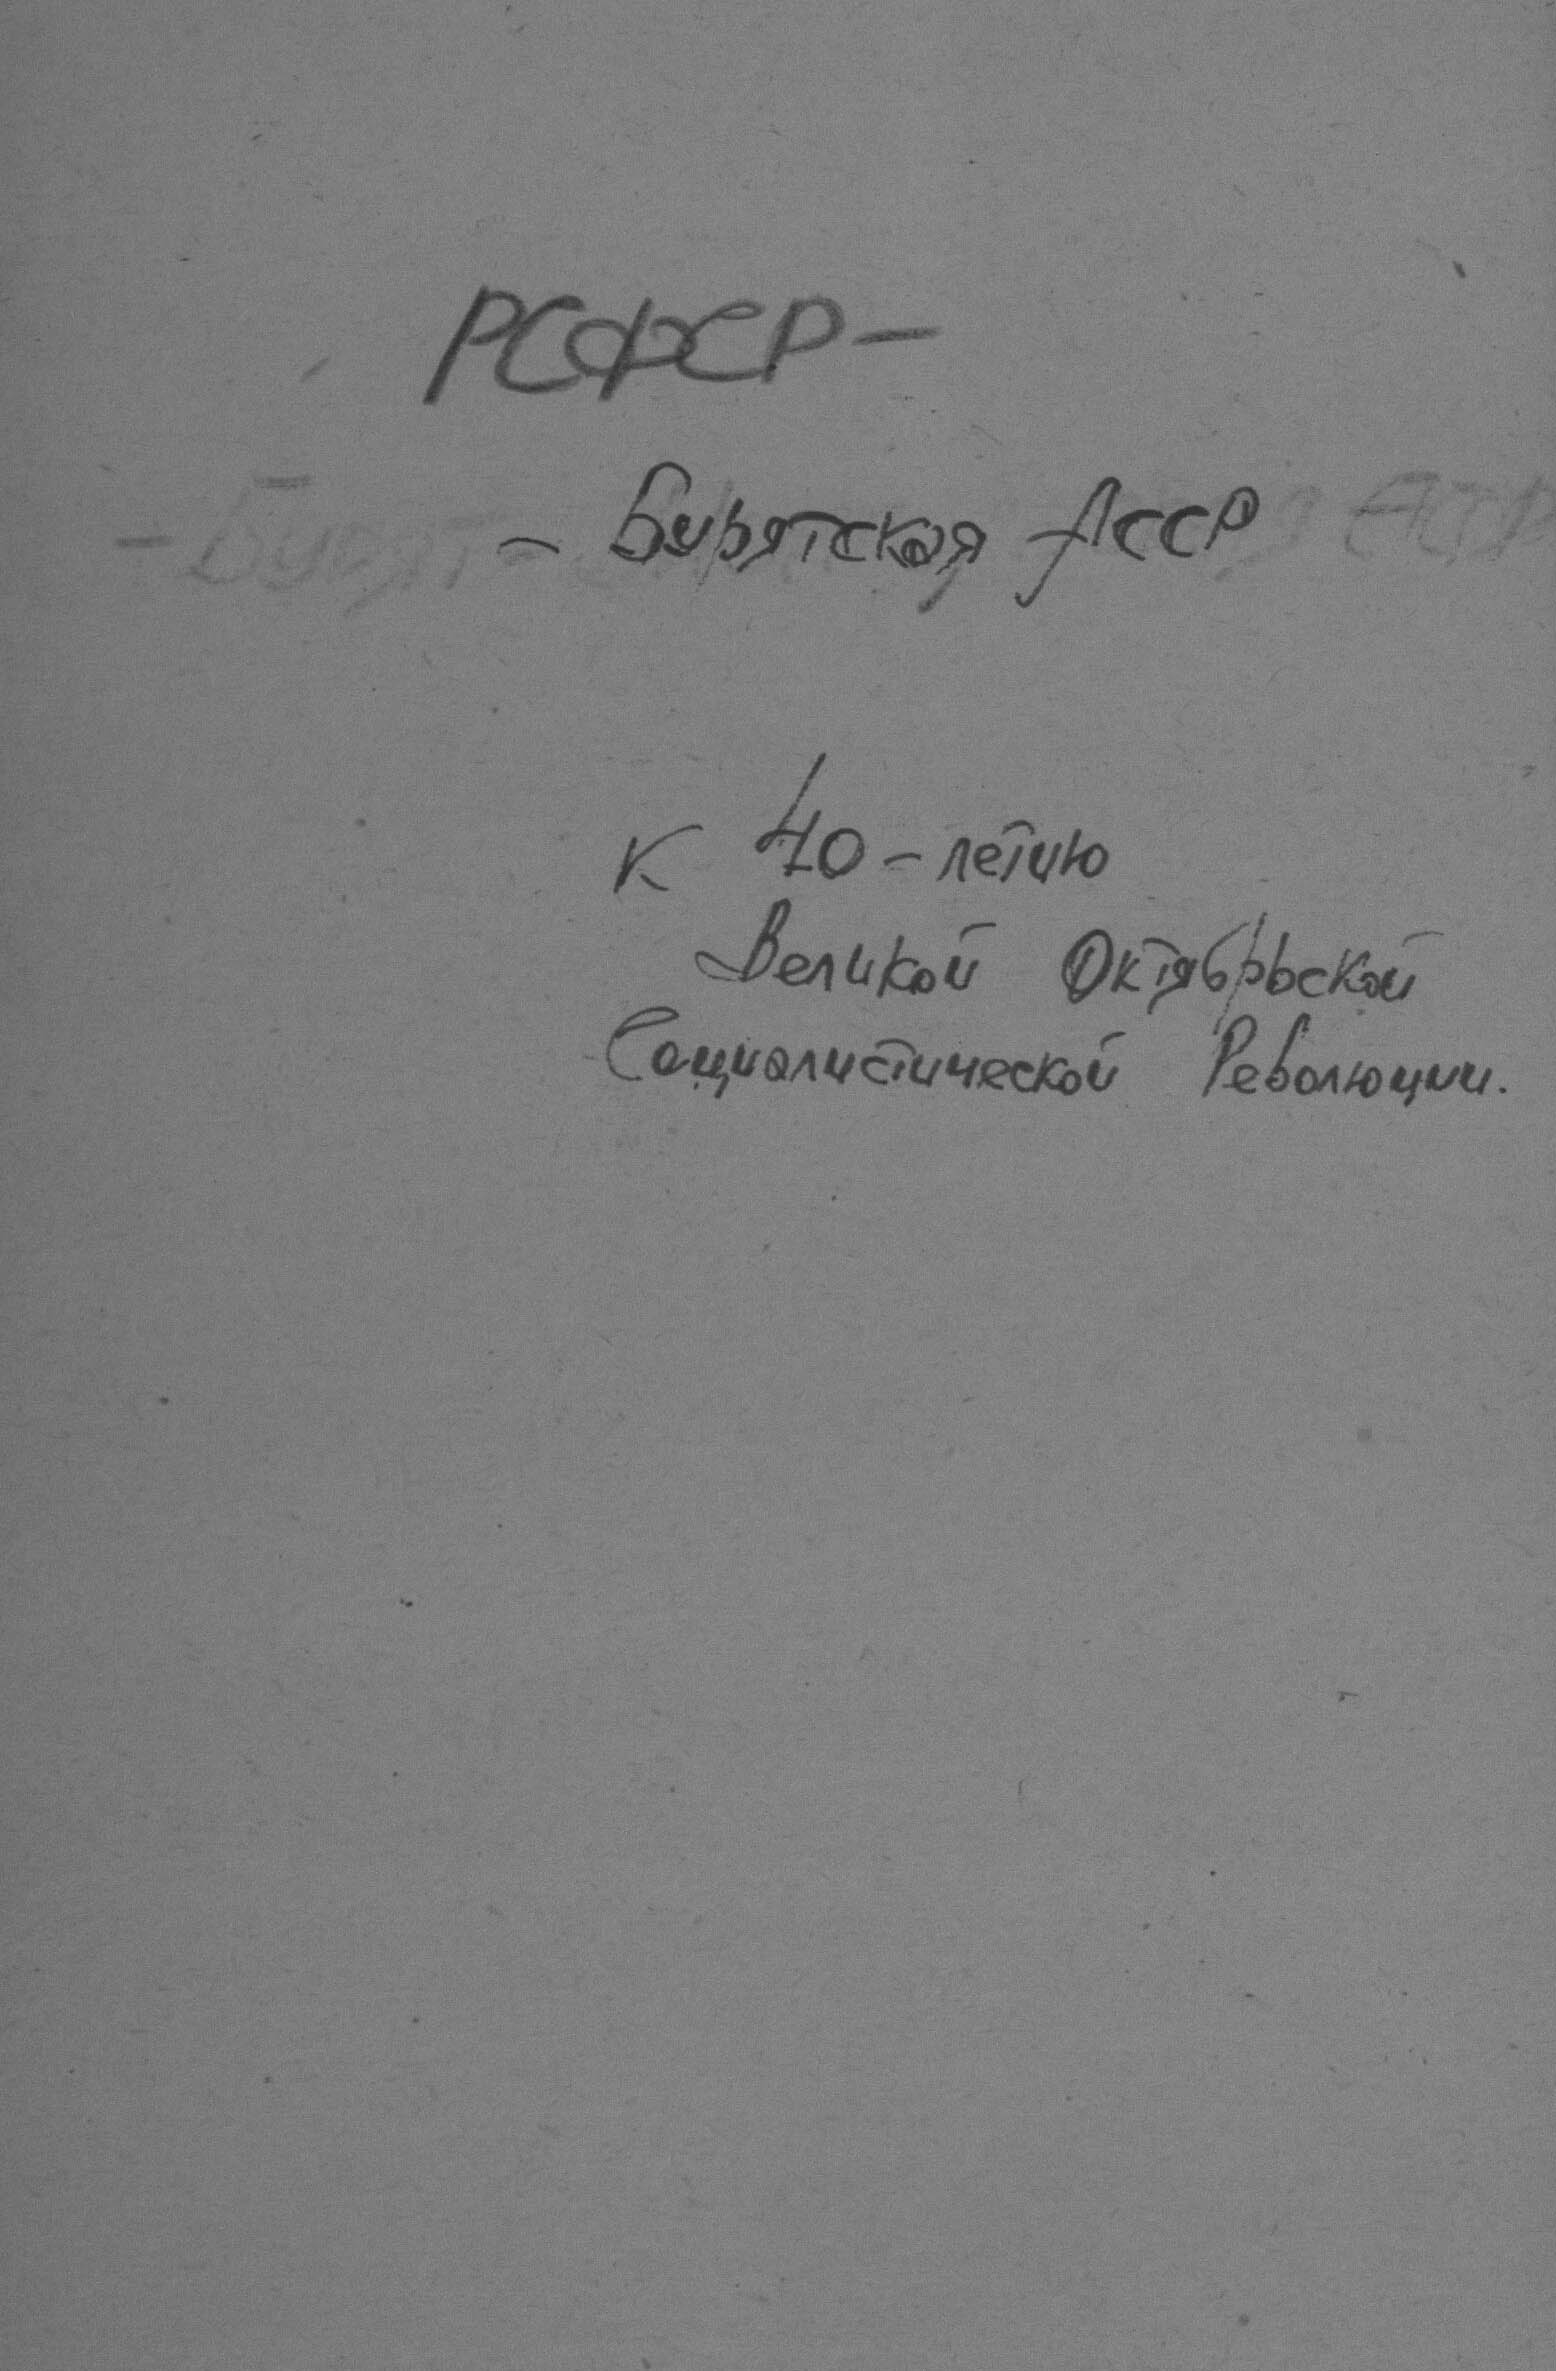 РСФСР –
– Бурятская АССР
к 40 – летию
Великой Октябрьской
Социалистической Революции.